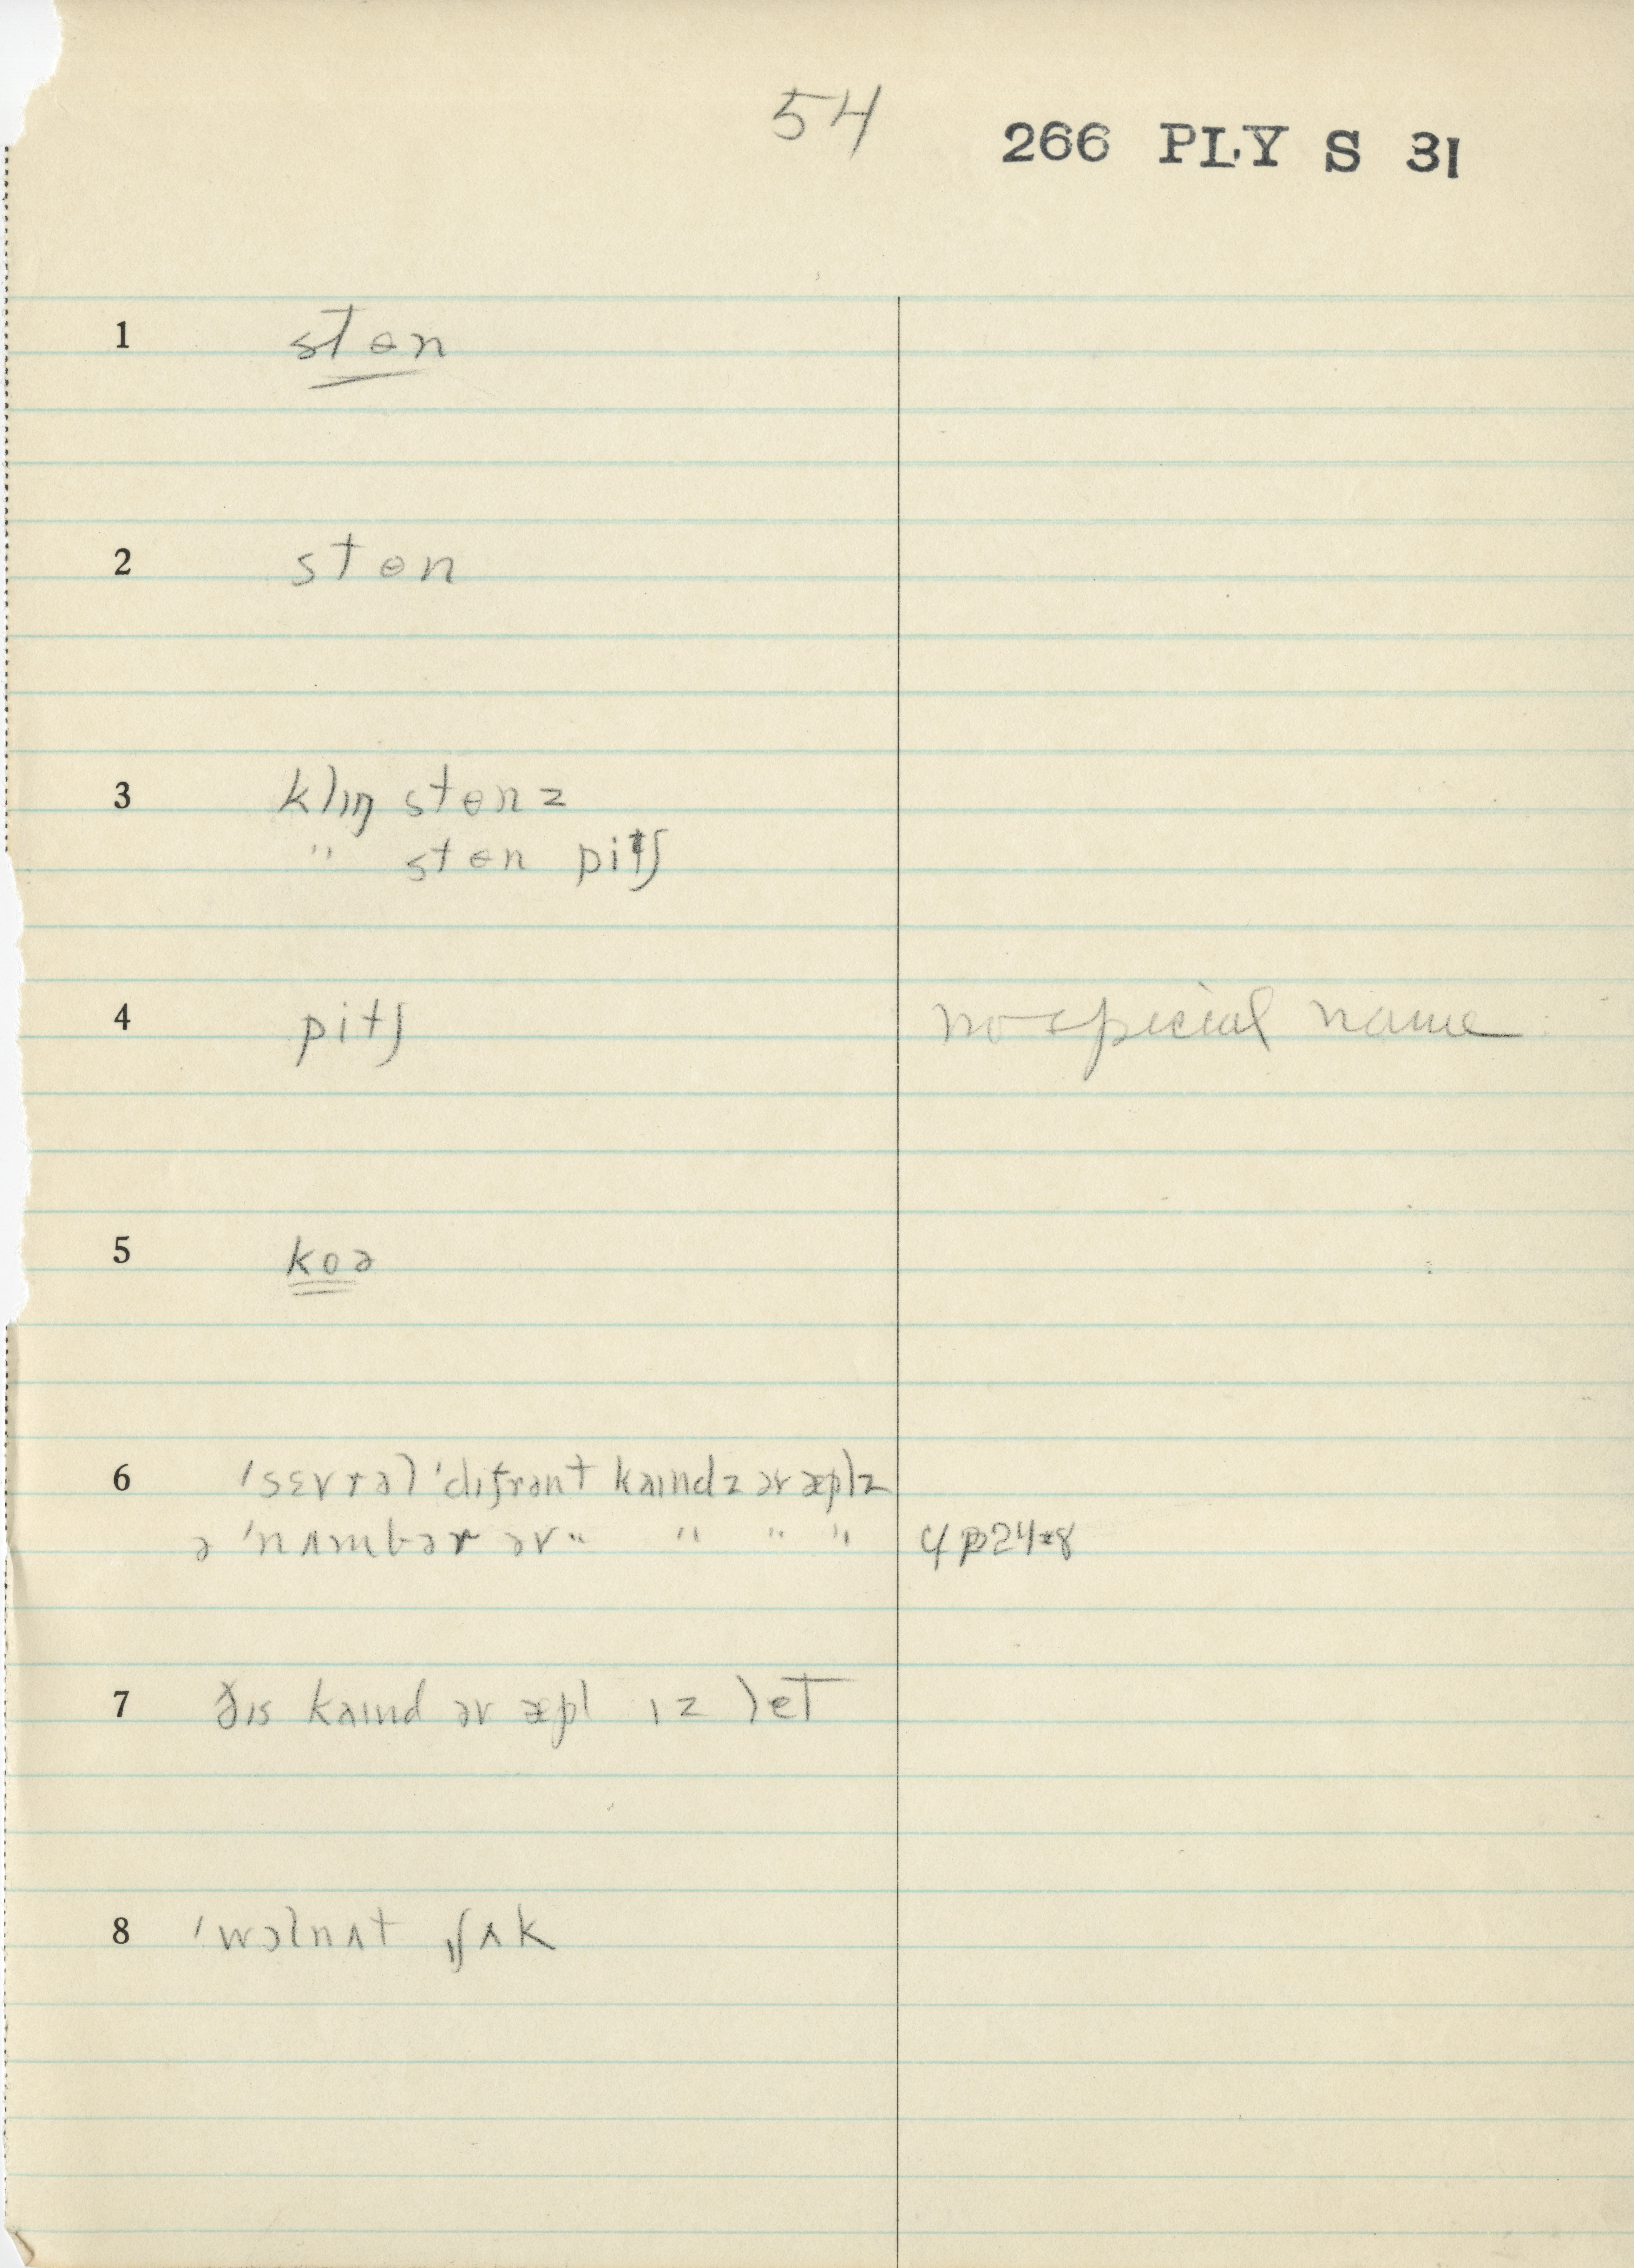 54
266 PLY S 31
1 stɵn
2 stɵn
3 klɪŋ stɵnz
" stɵn pitʃ
4 pitʃ no special name
5 koə
6 ˈsɛvrəl ˈdɪfrənt kaɪndz əv æplz
ə ˈnʌmbər əv " " " " 4p24*8
7 ðɪs kaɪnd əv æpl ɪz let
8 ˈwɔlnʌt ʃʌk